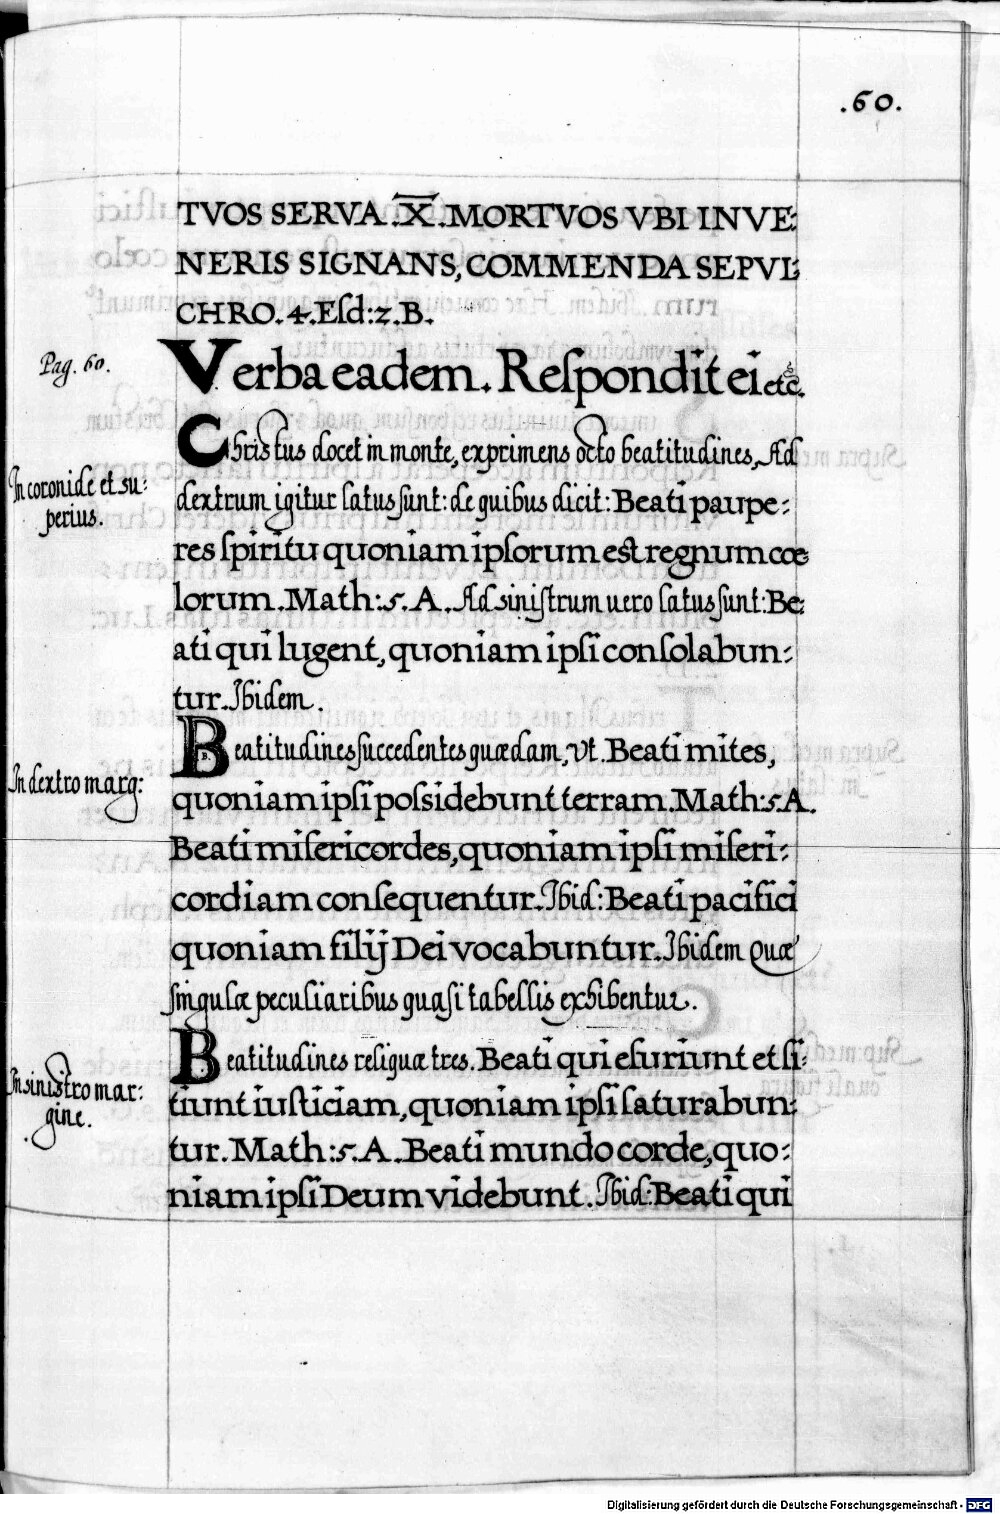 .60.
TVOS SERVA .X̅. MORTVOS VBI INVE:
NERIS SIGNANS, COMMENDA SEPVL:
CHRO. 4. Eſd: 2. B.
Pag. 60.
Verba eadem. Reſpondit ei etc.
Christus docet in monte, exprimens octo beatitudines, Ad
In coronide et su:
perius.
dextrum igitur latus sunt: de quibus dicit: Beati paupe:
res ſpiritu quoniam ipſorum est regnum cœ:
lorum. Math: 5. A. Ad siniſtrum uero latus sunt: Be:
ati qui lugent, quoniam ipſi conſolabun:
tur. Ibidem.
Beatitudines succedentes quædam, Vt. Beati mites,
In dextro marg:
quoniam ipſi poſsidebunt terram. Math: 5. A.
Beati miſericordes, quoniam ipſi miſeri:
cordiam conſequentur. Ibid: Beati pacifici
quoniam filij Dei vocabuntur. Ibidem Quæ
singulæ peculiaribus quaſi tabellis exhibentur.
Beatitudines reliquæ tres. Beati qui eſuriunt et ſi:
In sinistro mar:
gine.
tiunt iuſticiam, quoniam ipſi ſaturabun:
tur. Math: 5. A. Beati mundo corde, quo:
niam ipſi Deum videbunt. Ibid: Beati qui
Digitalisierung gefördert durch die Deutsche Forschungsgemeinschaft - DFG